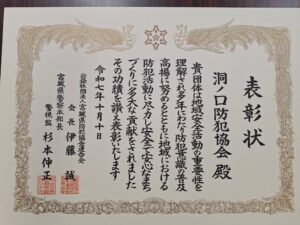 表彰状
洞ノ口防犯協会 殿
貴団体は地域安全活動の重要性を
理解され多年にわたり防犯意識の普及
高揚に努めるとともに地域における
防犯活動に尽力し安全で安心なまち
づくりに多大な貢献をされました
その功績を讃え表彰いたします
令和七年十月十日
公益社団法人宮城県防犯協会連合会
会長 伊藤 誠
宮城県警察本部長
警視監 杉本伸正